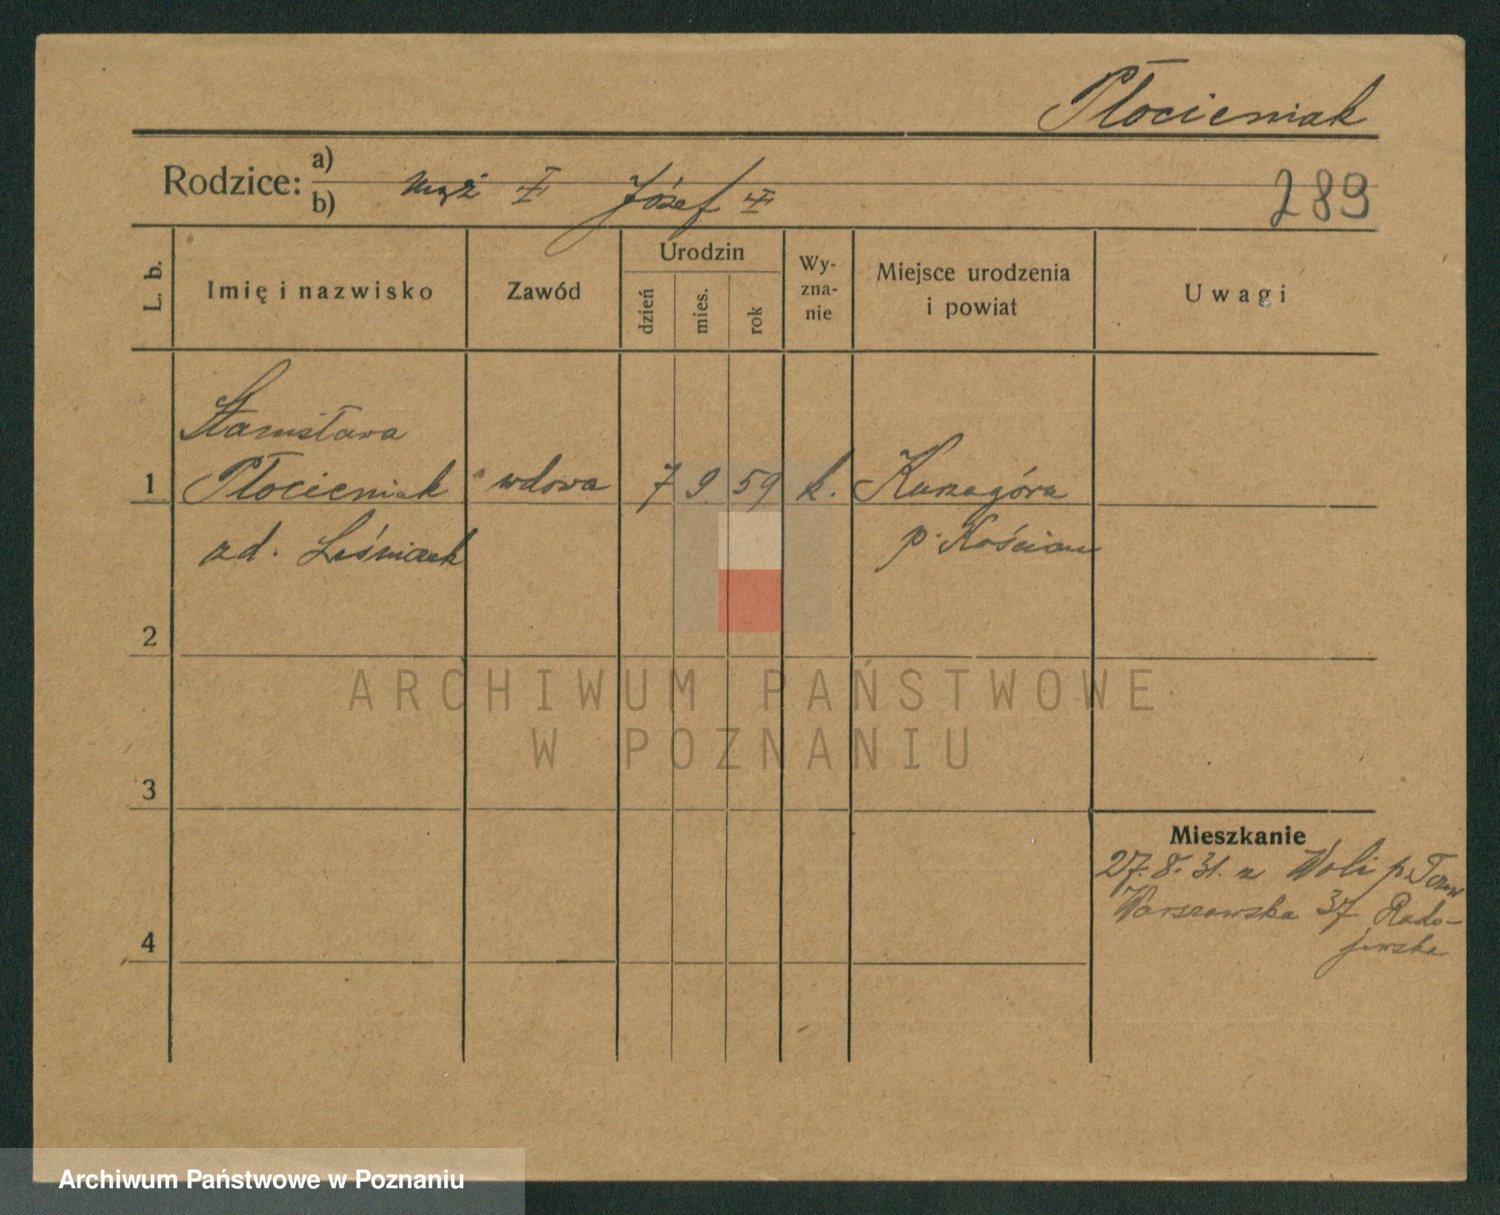 Płocieniak
Rodzice: a)
b) mąż I Józef I
289
L. b.
Imię i nazwisko
Zawód
Urodzin
dzień
mies.
rok
Wy-
zna-
nie
Miejsce urodzenia
i powiat
Uwagi
Stanisława
1 Płocieniak wdowa 7 9 59 k. Kurzagóra
zd. Leśniak p. Kościan
2
ARCHIWUM PAŃSTWOWE
W POZNANIU
3
Mieszkanie
27.8.31. z Woli p.
Warszawska 37 Rado-
jewska
4
Archiwum Państwowe w Poznaniu